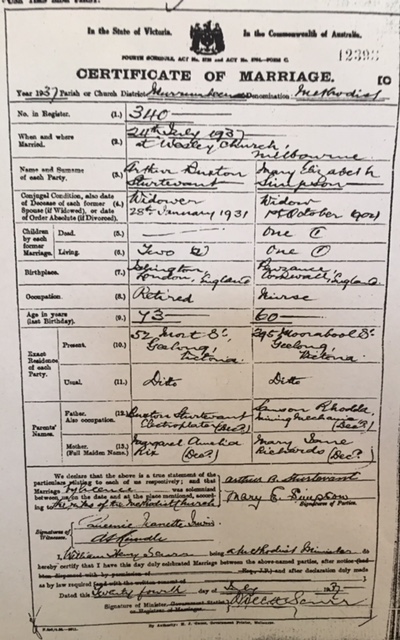 In the State of Victoria. In the Commonwealth of Australia.
FOURTH SCHEDULE, ACT No.
12393
CERTIFICATE OF MARRIAGE. [O
Year 1937 Parish or Church District Denomination: Methodist
No. in Register (1.) 340
When and where Married. (2.) 24th July 1937 at Wesley Church, Melbourne
Name and Surname of each Party. (3.) Arthur Buxton Sturtevant Mary Elizabeth Simpson
Conjugal Condition, also date of Decease of each former Spouse (if Widowed), or date of Order Absolute (if Divorced). (4.) Widower 28th January 1931 Widow 1st October 1904
Children by each former Marriage. Dead. (5.) — One (1)
Living. (6.) Two (2) One (1)
Birthplace. (7.) London, England Penzance Cornwall, England
Occupation. (8.) Retired Nurse
Age in years (last Birthday). (9.) 73 60
Exact Residence of each Party. Present. (10.) 52 Mort St. Geelong, Victoria 295 Moorabool St. Geelong, Victoria
Usual. (11.) Ditto Ditto
Parents' Names. Father. Also occupation. (12.) Buxton Sturtevant Electroplater (Dec'd) Rhodda Mining Mechanic (Dec'd)
Mother. (Full Maiden Name). (13.) Margaret Amelia Rix (Dec'd) Mary Jane Richards (Dec'd)
We declare that the above is a true statement of the particulars relating to each of us respectively; and that Marriage by licence was solemnized between us on the date and at the place mentioned, according to rites of the Methodist Church
Arthur B. Sturtevant
Mary E. Simpson
Signatures of Parties.
Signatures of Witnesses.
I, William Henry being a Methodist Minister do
hereby certify that I have this day duly celebrated Marriage between the above-named parties, after
and after declaration duly made
as by law required
Dated this Twenty fourth day of July 1937
Signature of Minister
By Authority: H. J. Green, Government Printer, Melbourne.